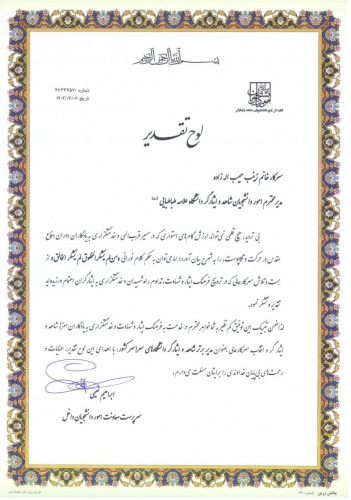 بسم الله الرحمن الرحیم
شماره: ۲۱/۲۳۳۵۷۰
تاریخ: ۱۴۰۲/۰۲/۰۲
لوح تقدیر
سرکار خانم زینب حبیب اله زاده
مدیر محترم امور دانشجویان شاهد و ایثارگر دانشگاه علامه طباطبایی
بی تردید، هیچ قلمی نمی‌تواند ارزش گام‌های استواری که در مسیر قرب الهی و خدمتگزاری به یادگاران دوران دفاع
مقدس در حرکت و تکاپوست، را به شرح بیان آورد؛ اما می‌توان به حکم کلام نورانی «من لم یشکر المخلوق لم یشکر الخالق» از
همت و تلاش سرکارعالی که در ترویج فرهنگ ایثار و شهادت، تداوم راه شهیدان و خدمتگزاری به ایثارگران اهتمام ورزیده‌اید
تقدیر و تشکر نمود.
لذا ضمن تبریک این توفیق کم نظیر به شما خواهر محترم در خدمت به فرهنگ ایثار و شهادت و خدمتگزاری به یادگاران معزز شاهد و
ایثارگر و انتخاب سرکارعالی بعنوان مدیر برتر شاهد و ایثارگر دانشگاه‌های سراسر کشور، با اهدای این لوح تقدیر، عنایات و
رحمت‌های بی‌پایان خداوندی را برایتان مسئلت می‌دارم.
ابراهیم
سرپرست معاونت امور دانشجویان داخل